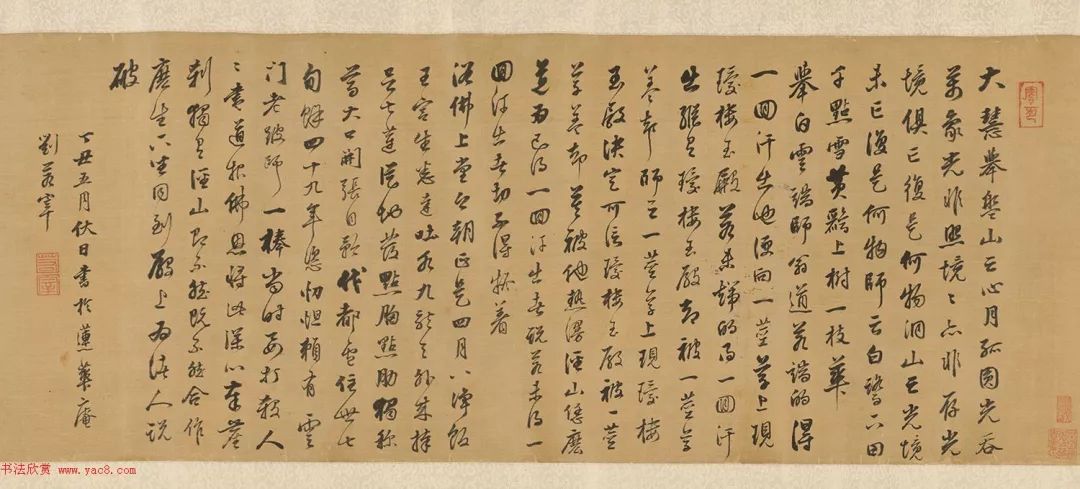 大慧舉盤山云心月孤圓光吞
萬象光非照境〻亦非存光
境俱亡復是何物洞山云光境
未亡復是何物師云白鷺下田
千點雪黃鸝上樹一枝華
舉白雲端師翁道若端的得
一回汗出也便向一莖草上現
瓊樓玉殿若未端的得一回汗
出縱有瓊樓玉殿却被一莖草
蓋却師云一莖草上現瓊樓
玉殿決定可信瓊樓玉殿被一莖
草蓋却莫被他熱謾徑山恁麼
道為已得一回汗出者說若未得一
回汗出者切不得着
浴佛上堂今朝正是四月八淨飯
王宮生悉達吐水九龍天外來捧
足七蓮從地發點胸點肋獨稱
尊大口開張自矜伐都盧住世七
旬餘四十九年恣忉怛賴有雲
門老跛師一棒當時要打殺人
〻盡道報佛恩將此深心奉塵
刹獨有徑山即不然既不然合作
麼生下座同到殿上為諸人說
破
丁丑五月伏日書於蓮華庵
劉若宰
书法欣赏 www.yac8.com